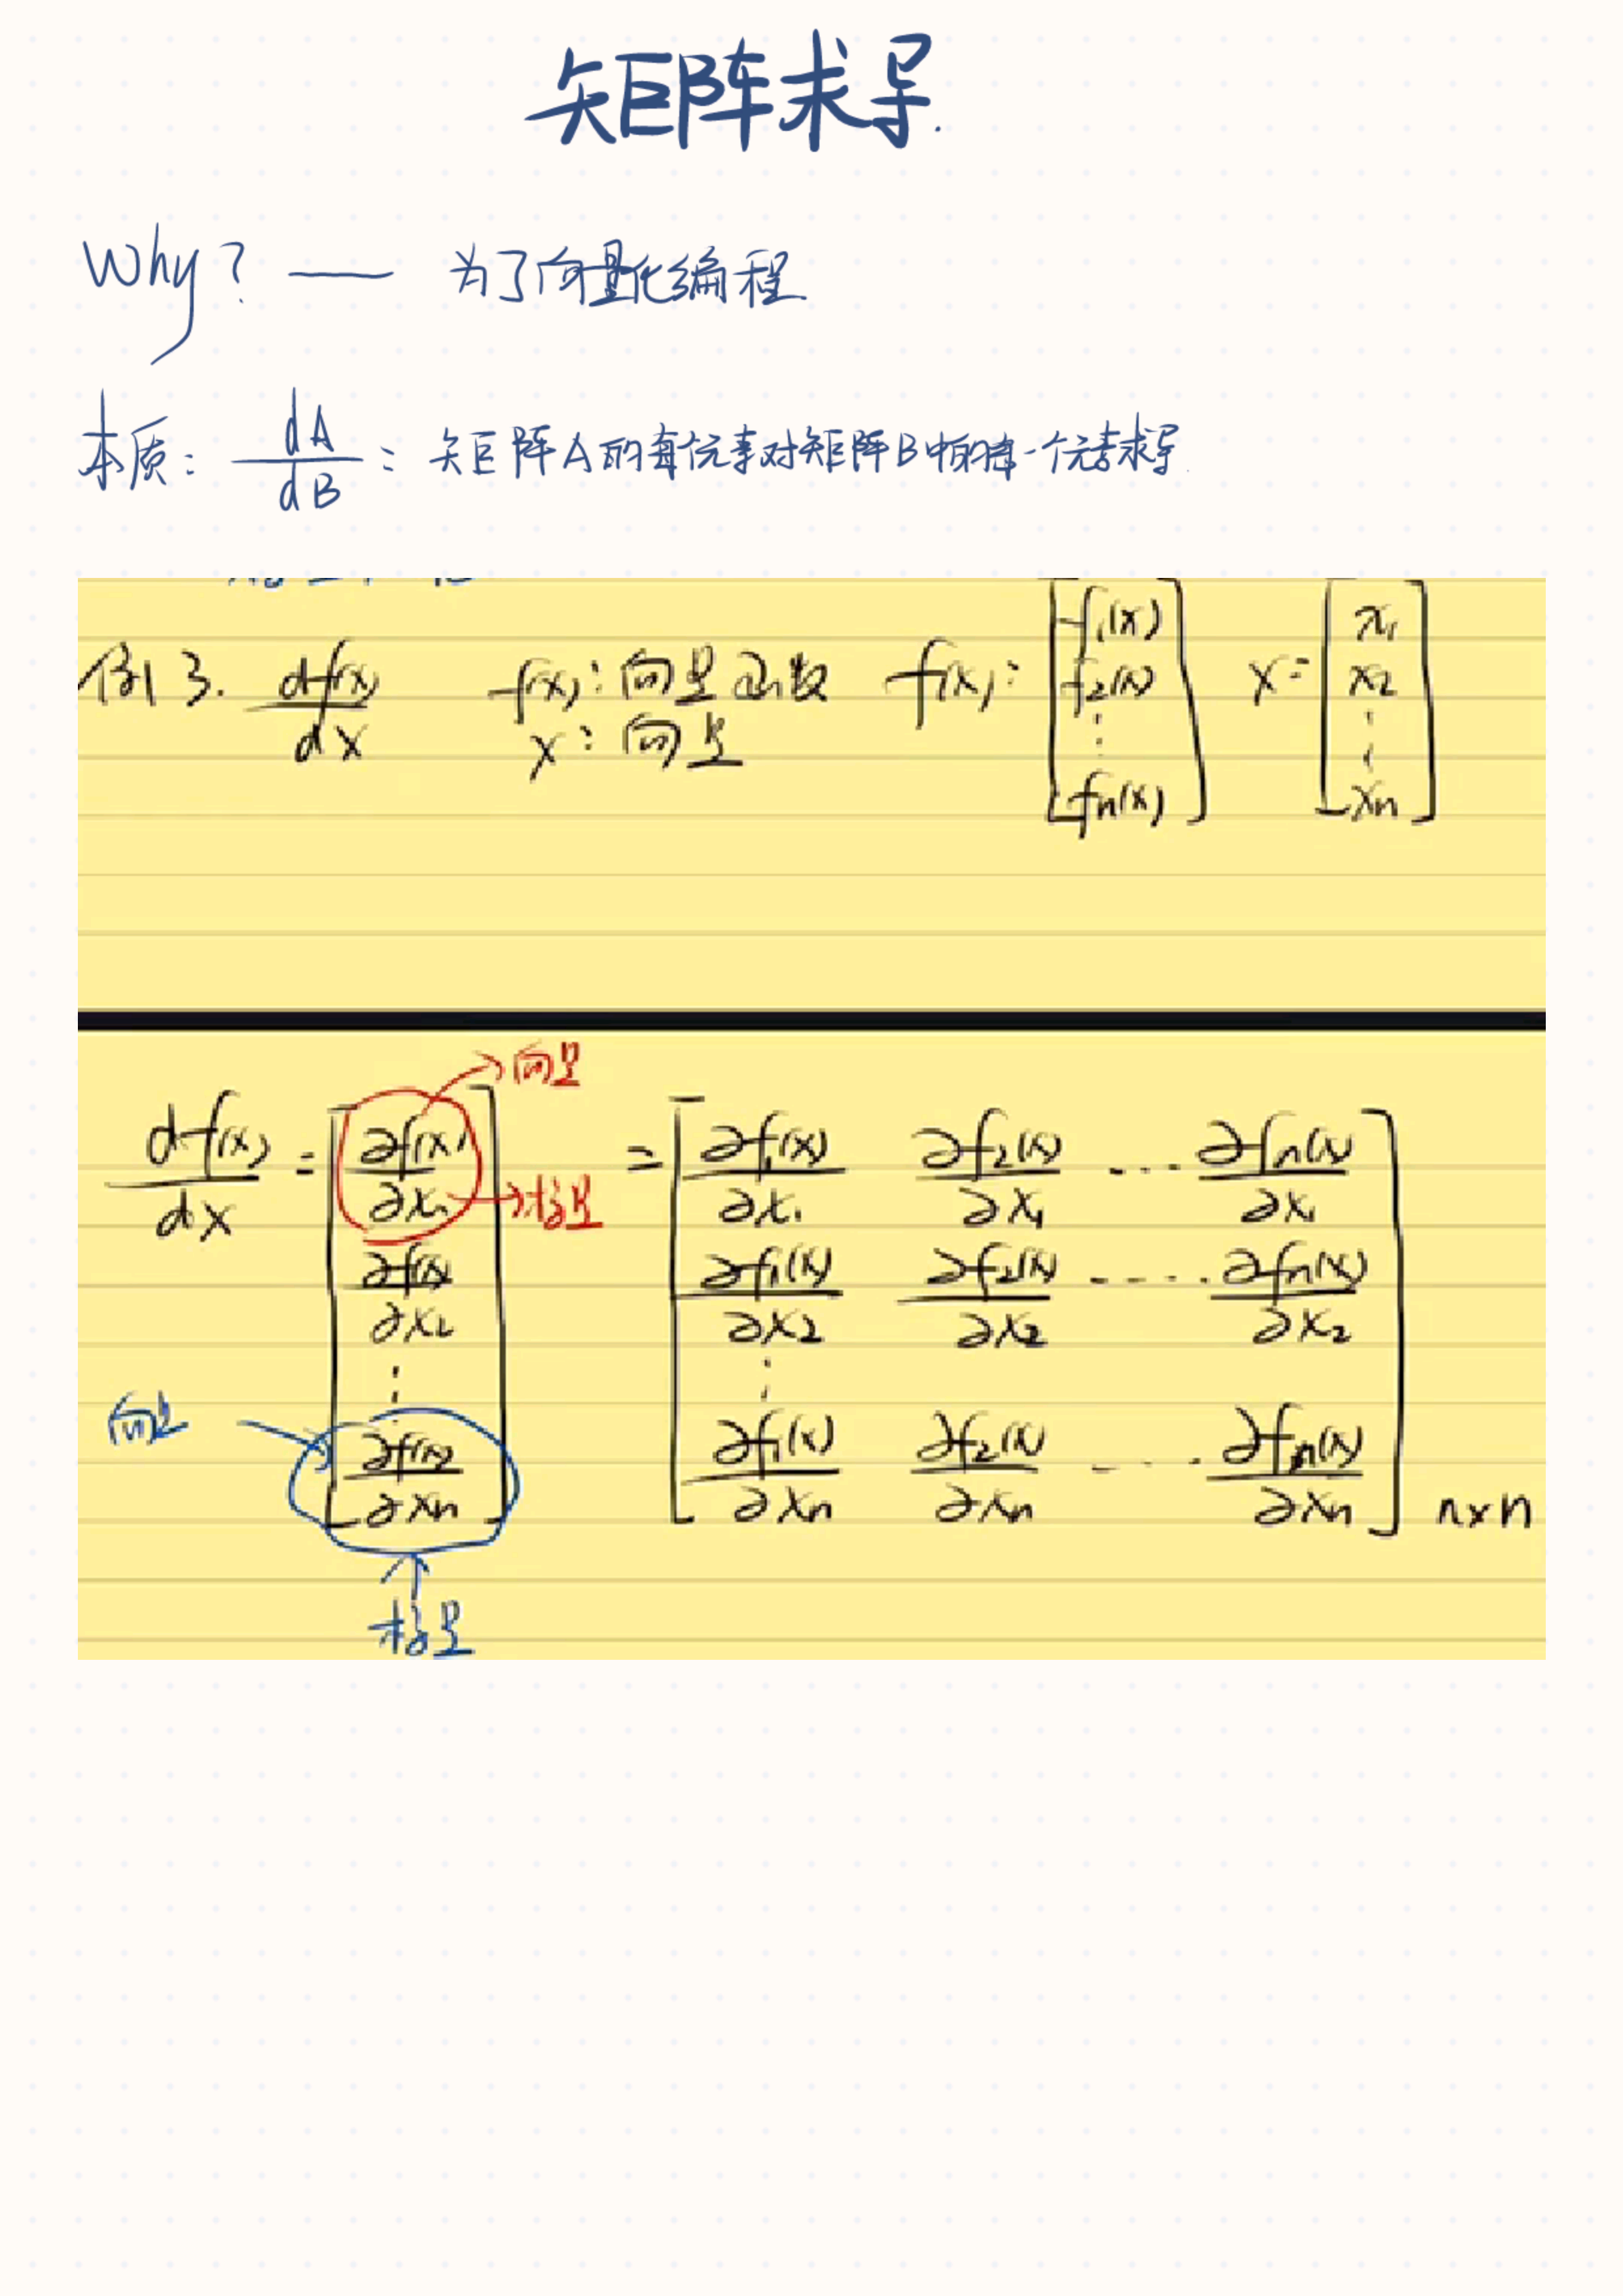 矩阵求导.
Why? —— 为了向量化编程
本质: dA/dB : 矩阵A的每个元素对矩阵B中的每一个元素求导.
例3. df(x)/dx f(x): 向量函数 f(x): [f₁(x) f₂(x) ⋮ fn(x)] X= [x₁ x₂ ⋮ xn]
x: 向量
df(x)/dx = [∂f(x)/∂x₁ ∂f(x)/∂x₂ ⋮ ∂f(x)/∂xn] = [∂f₁(x)/∂x₁ ∂f₂(x)/∂x₁ ... ∂fn(x)/∂x₁
∂f₁(x)/∂x₂ ∂f₂(x)/∂x₂ ... ∂fn(x)/∂x₂
⋮
∂f₁(x)/∂xn ∂f₂(x)/∂xn ... ∂fn(x)/∂xn] n×n
向量
标量
向量
标量